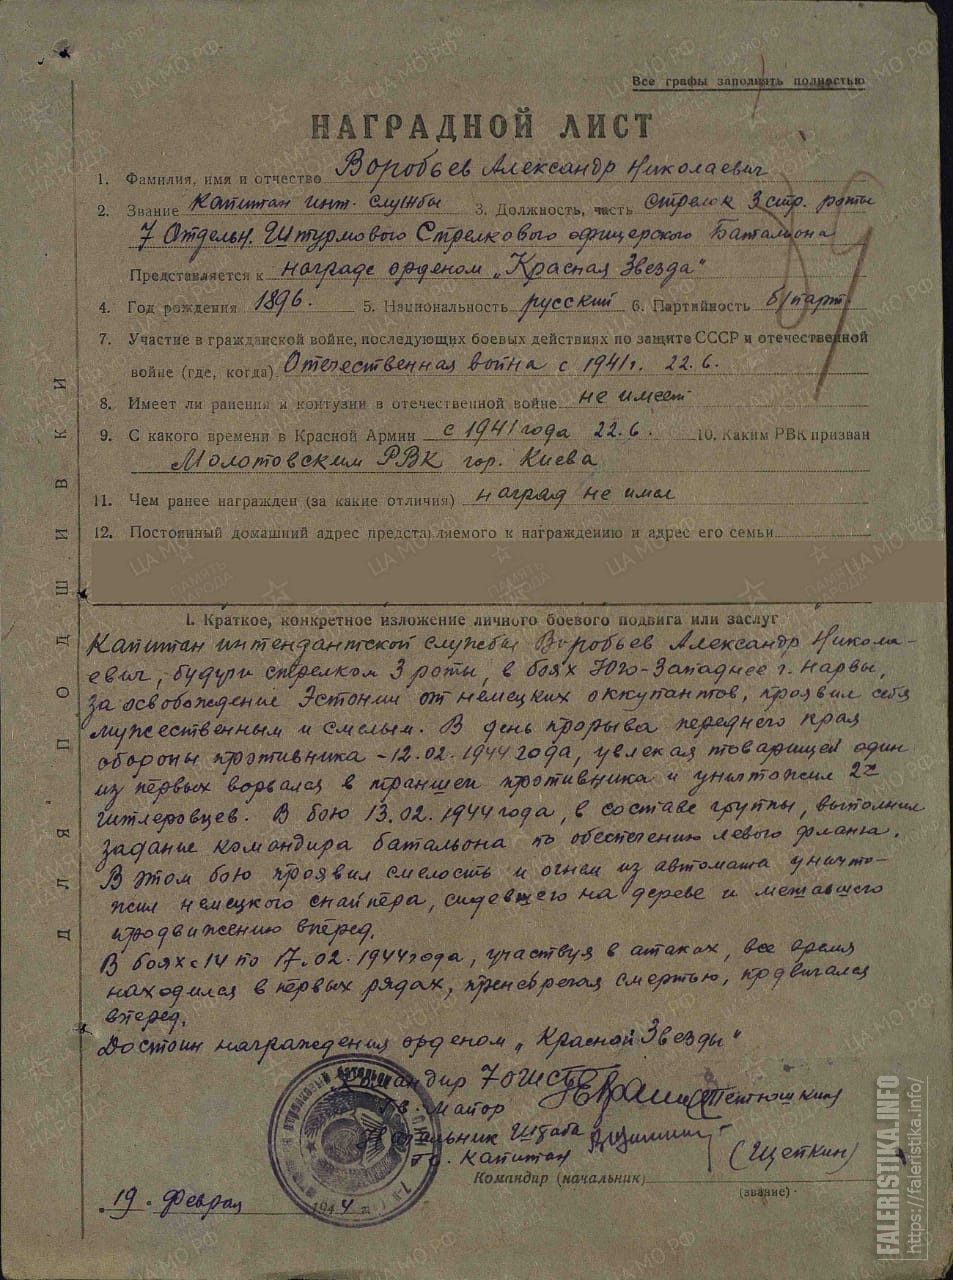 Все графы заполнять полностью
НАГРАДНОЙ ЛИСТ
1. Фамилия, имя и отчество Воробьев Александр Николаевич
2. Звание Капитан инт. службы 3. Должность, часть стрелок 3 стр. роты
7 Отдельн. Штурмового Стрелкового офицерского Батальона
Представляется к награде орденом „Красная Звезда"
4. Год рождения 1896. 5. Национальность русский 6. Партийность б/парт.
7. Участие в гражданской войне, последующих боевых действиях по защите СССР и отечественной
войне (где, когда) Отечественная война с 1941 г. 22.6.
8. Имеет ли ранения и контузии в отечественной войне не имеет
9. С какого времени в Красной Армии с 1941 года 22.6. 10. Каким РВК призван
Молотовским РВК гор. Киева
11. Чем ранее награжден (за какие отличия) наград не имел
12. Постоянный домашний адрес представляемого к награждению и адрес его семьи
I. Краткое, конкретное изложение личного боевого подвига или заслуг
Капитан интендантской службы Воробьев Александр Никола-
евич, будучи стрелком 3 роты, в боях Юго-Западнее г. Нарвы,
за освобождение Эстонии от немецких оккупантов, проявил себя
мужественным и смелым. В день прорыва переднего края
обороны противника - 12.02.1944 года, увлекая товарищей один
из первых ворвался в траншеи противника и уничтожил 2х
гитлеровцев. В бою 13.02.1944 года, в составе группы, выполнил
задание командира батальона по обеспечению левого фланга.
В этом бою проявил смелость и огнем из автомата уничто-
жил немецкого снайпера, сидевшего на дереве и мешавшего
продвижению вперед.
В боях с 14 по 17.02.1944 года, участвуя в атаках, все время
находился в первых рядах, пренебрегая смертью, продвигался
вперед.
Достоин награждения орденом „Красной Звезды"
Командир 7 ошсб
Гв. Майор
Начальник Штаба
Гв. Капитан (Щепкин)
Командир (начальник)
(звание)
19 Февраля 1944 г.
ДЛЯ ПОДШИВКИ
89
FALERISTIKA.INFO
https://faleristika.info
ЦА МО РФ
ПАМЯТЬ НАРОДА